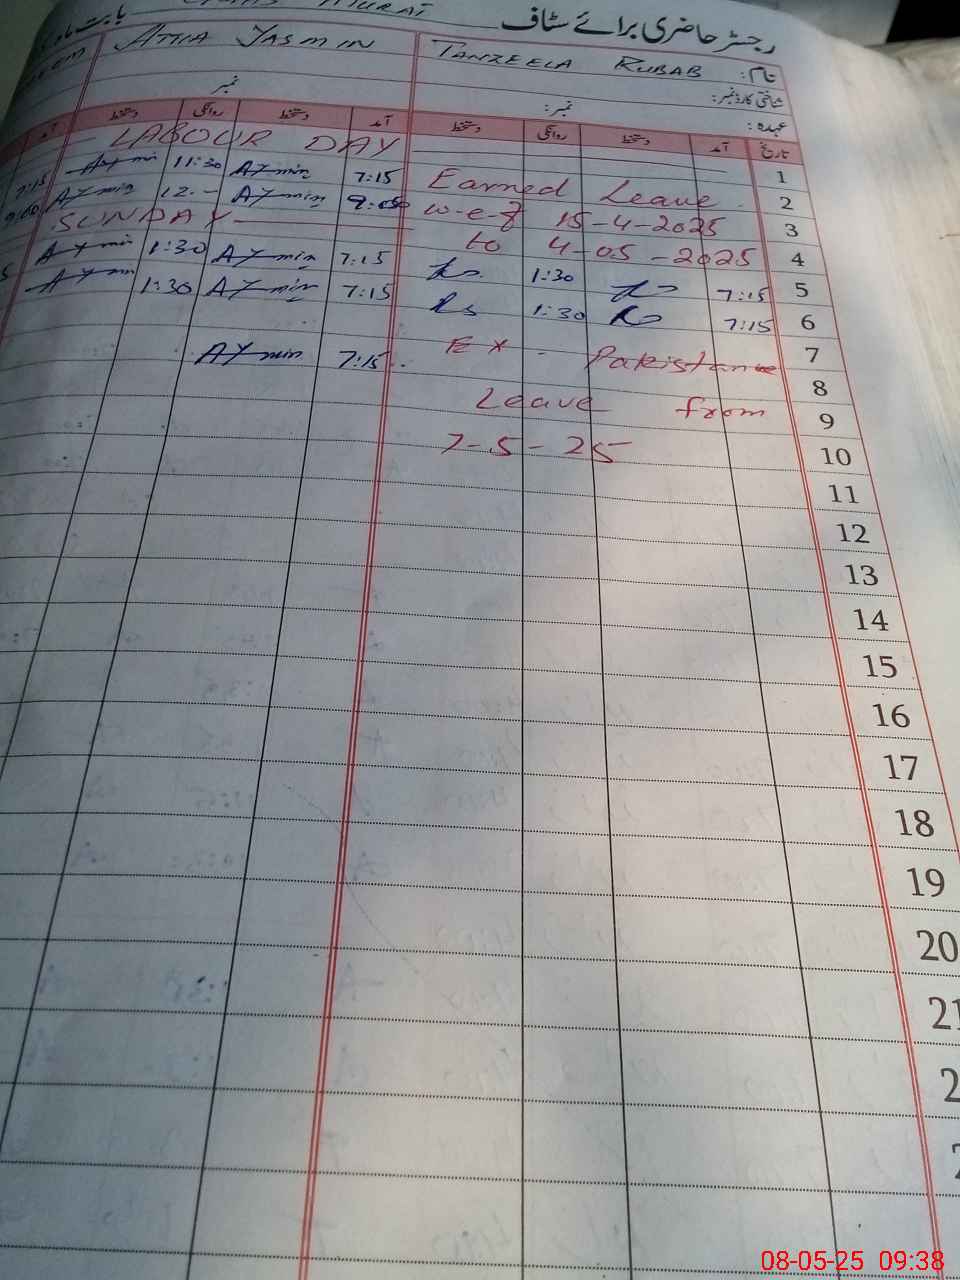 رجسٹر حاضری برائے سٹاف
بابت ماہ
نام: TANZEELA RUBAB
ATTIA YASMIN
شناختی کارڈ نمبر:
عہدہ: نمبر:
نمبر
تاریخ آمد دستخط روانگی دستخط آمد دستخط روانگی دستخط
1
LABOUR DAY
2 Earned Leave
7:15 AYmin 11:30 AYmin 7:15
3 w-e-f 15-4-2025
9:05 AYmin 12.- AYmin 9:00
4 to 4-05-2025
SUNDAY
5 7:15 1:30
7:15 AYmin 1:30 AYmin
6 7:15 1:30
7:15 AYmin 1:30 AYmin
7 Ex-Pakistan
8 Leave from
7:15 AYmin
9 7-5-25
10
11
12
13
14
15
16
17
18
19
20
21
08-05-25 09:38